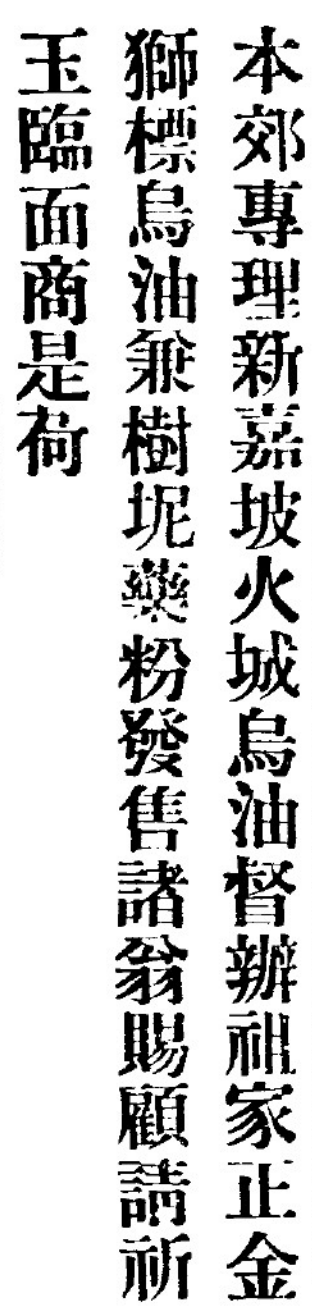 本郊專理新嘉坡火城烏油督辦祖家正金
獅標烏油兼樹坭藥粉發售諸翁賜顧請祈
玉臨面商是荷